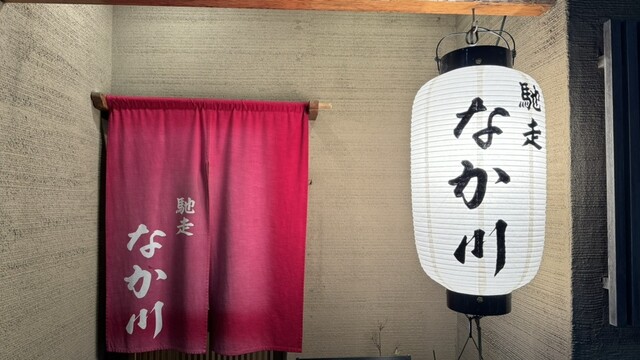 馳走
なか川
馳走
なか川